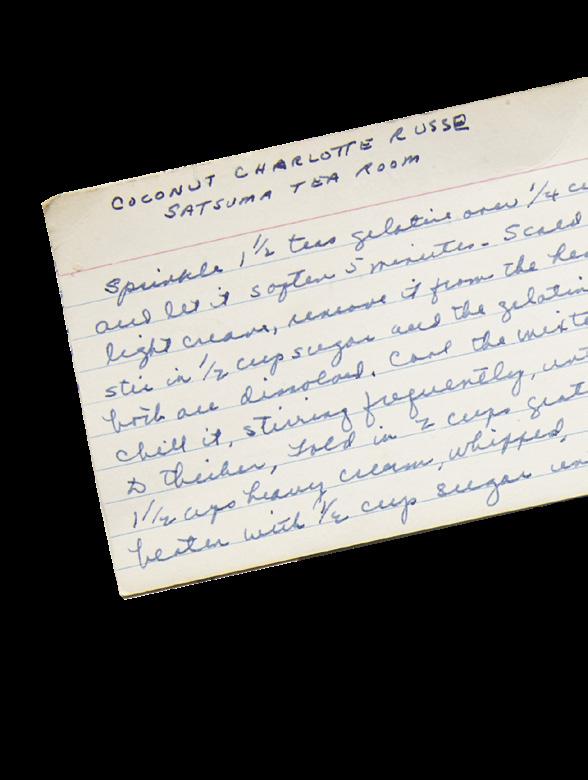 COCONUT CHARLOTTE RUSSE
SATSUMA TEA ROOM
Sprinkle 1 1/2 teas gelatine over 1/4 cu
and let it soften 5 minutes. Scald
light cream, remove it from the hea
stir in 1/2 cup sugar and the gelatin
both are dissolved. Cool the mixtu
chill it, stirring frequently, unt
to thicken, fold in 2 cups grat
1 1/2 cups heavy cream, whipped,
beaten with 1/2 cup sugar un